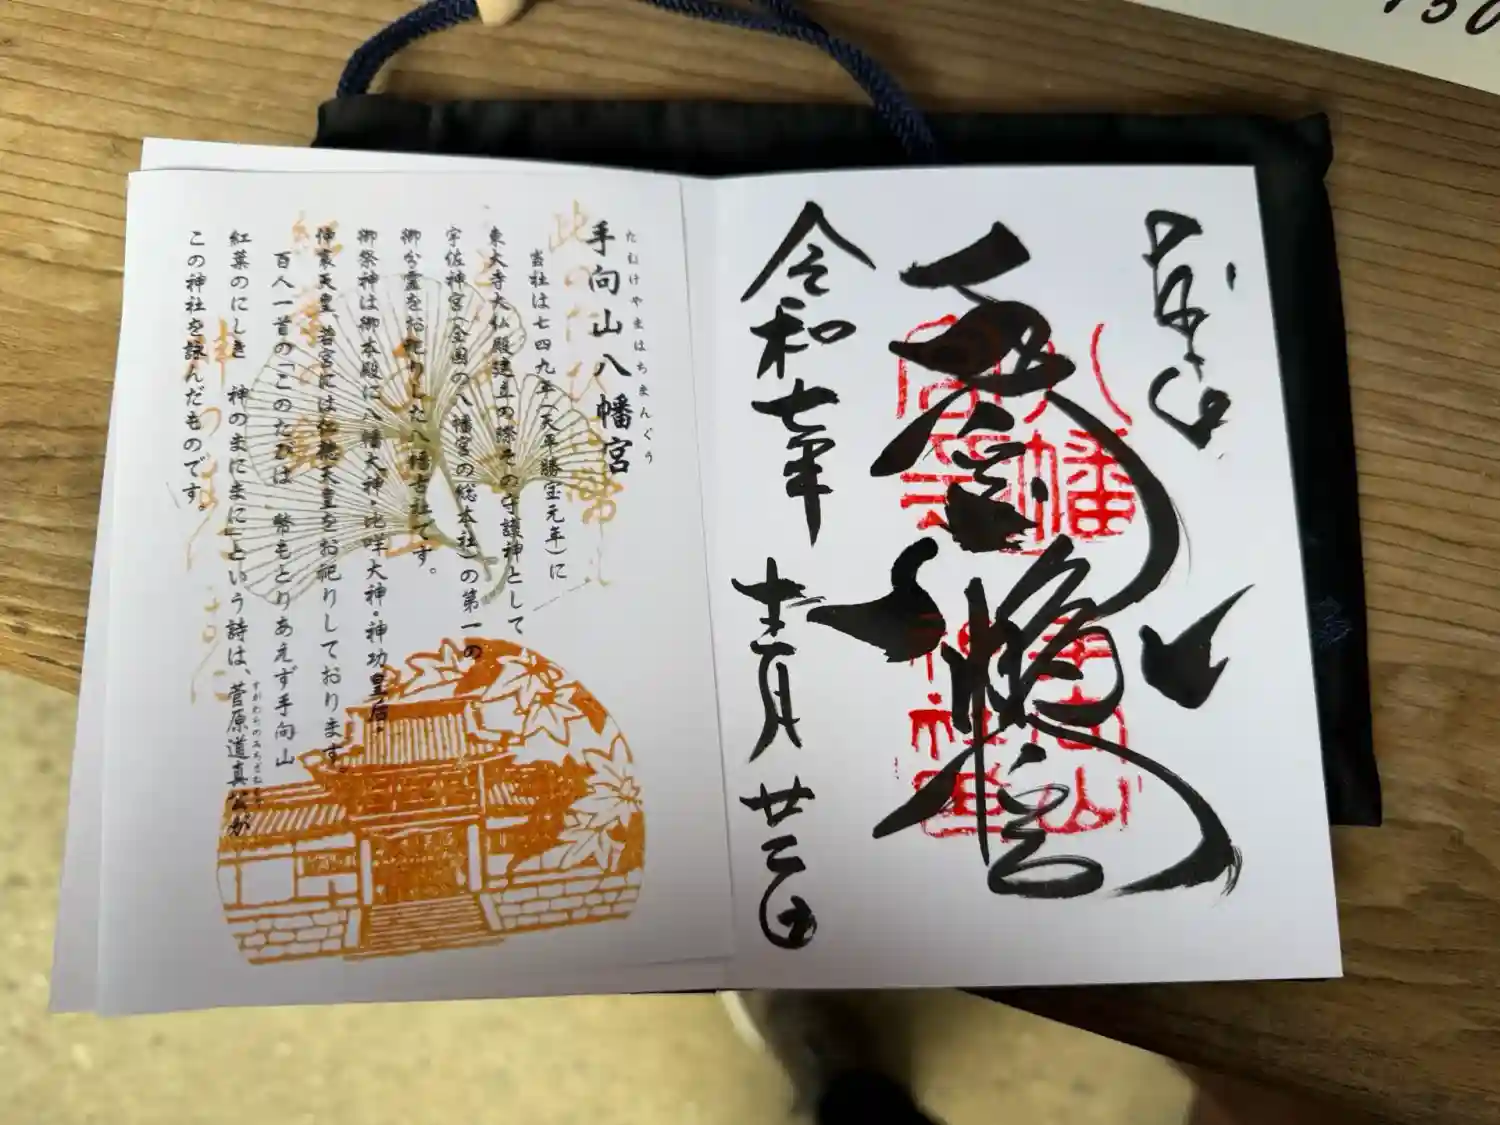 奉拝
八幡宮
令和七年
十一月廿二日
たむけやまはちまんぐう
手向山八幡宮
当社は七四九年(天平勝宝元年)に
東大寺大仏殿建立の際その守護神として
宇佐神宮(全国の八幡宮の総本社)の第一の
御分霊をお祀りした八幡古社です。
御祭神は御本殿に八幡大神・比咩大神・神功皇后・
仲哀天皇、若宮には仁徳天皇をお祀りしております。
百人一首の「このたびは 幣もとりあえず手向山
紅葉のにしき 神のまにまに」という詩は、菅原道真公が
すがわらのみちざね
この神社を詠んだものです。